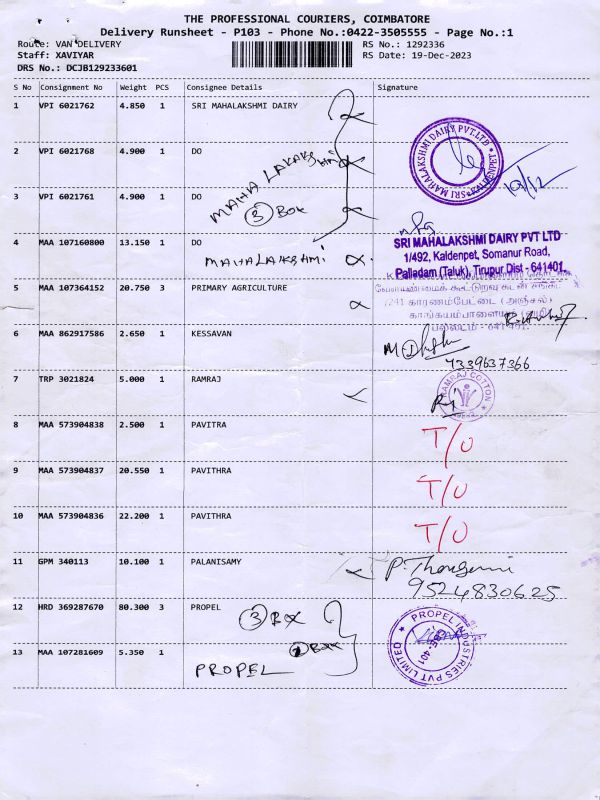 THE PROFESSIONAL COURIERS, COIMBATORE
Delivery Runsheet - P103 - Phone No.:0422-3505555 - Page No.:1
Route: VAN DELIVERY
RS No.: 1292336
Staff: XAVIYAR
RS Date: 19-Dec-2023
DRS No.: DCJB129233601
S No Consignment No Weight PCS Consignee Details Signature
1 VPI 6021762 4.850 1 SRI MAHALAKSHMI DAIRY
SRI MAHALAKSHMI DAIRY PVT.LTD
2 VPI 6021768 4.900 1 DO
MAHALAKAKSHMI
19/12
3 VPI 6021761 4.900 1 DO
3 Box
4 MAA 107160800 13.150 1 DO
MAHALAKSHMI
SRI MAHALAKSHMI DAIRY PVT LTD
1/492, Kaldenpet, Somanur Road,
Palladam (Taluk), Tirupur Dist - 641401.
5 MAA 107364152 20.750 3 PRIMARY AGRICULTURE
6 MAA 862917586 2.650 1 KESSAVAN
7339637366
7 TRP 3021824 5.000 1 RAMRAJ
RAMRAJ COTTON
8 MAA 573904838 2.500 1 PAVITRA
T/O
9 MAA 573904837 20.550 1 PAVITHRA
T/O
10 MAA 573904836 22.200 1 PAVITHRA
T/O
11 GPM 340113 10.100 1 PALANISAMY
9524830625
12 HRD 369287670 80.300 3 PROPEL
3 Box
PROPEL INDUSTRIES PVT LIMITED
13 MAA 107281609 5.350 1
1 Box
PROPEL